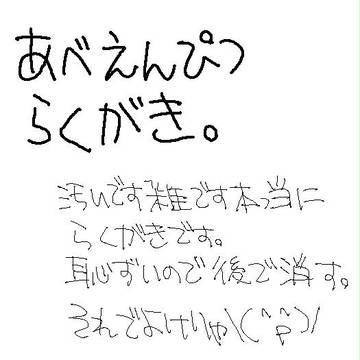 あべえんぴつ
らくがき。
汚いです雑です本当に
らくがきです。
恥ずいので後で消す。
それでよけりゃ\(^p^)/